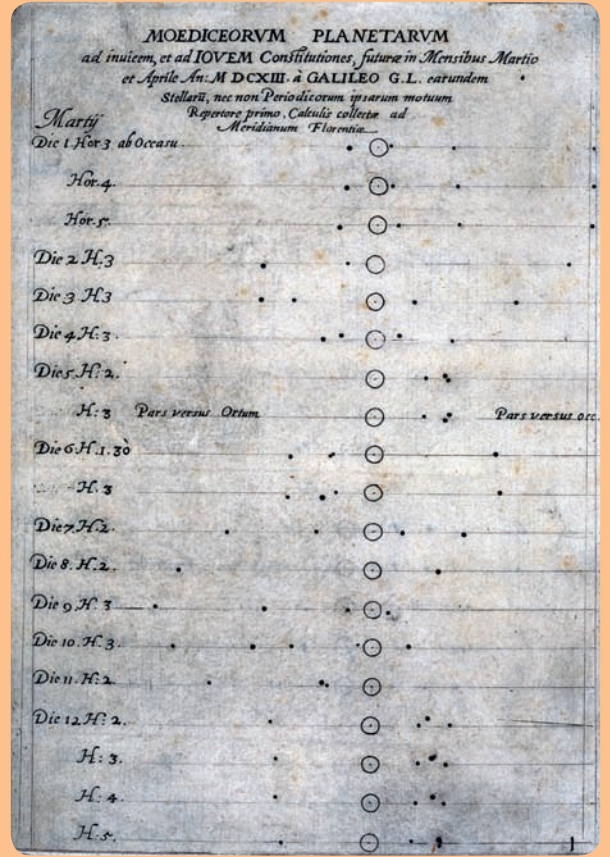 MOEDICEORVM PLANETARVM
ad inuicem, et ad IOVEM Constitutiones, futuræ in Mensibus Martio
et Aprile An: M DCXIII. à GALILEO G.L. earundem
Stellarũ, nec non Periodicorum ipsarum motuum
Repertore primo. Calculis collectæ ad
Meridianum Florentiæ
Martij
Die 1. Hor. 3 ab Occasu.
Hor. 4.
Hor. 5.
Die 2 H: 3
Die 3 H 3
Die 4 H: 3.
Die 5. H: 2.
H: 3 Pars versus Ortum Pars versus occ.
Die 6 H. 1. 30
H. 3
Die 7. H. 2.
Die 8. H. 2.
Die 9. H. 3
Die 10. H. 3.
Die 11. H: 2.
Die 12 H: 2.
H: 3.
H: 4.
H: 5.
1